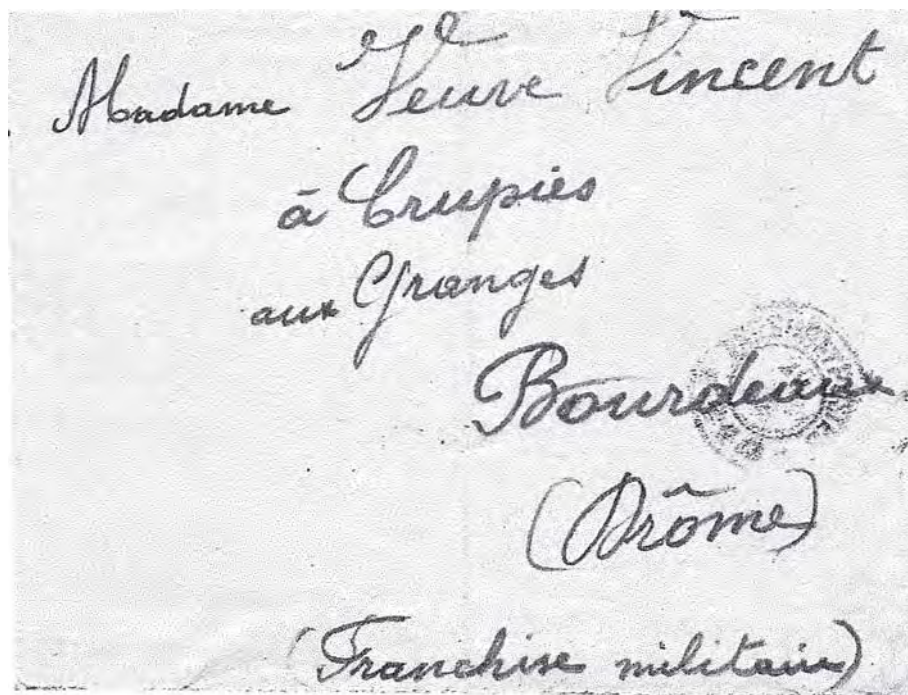 Madame Veuve Vincent
à Crupies
aux Granges
Bourdeaux
(Drôme)
(Franchise militaire)